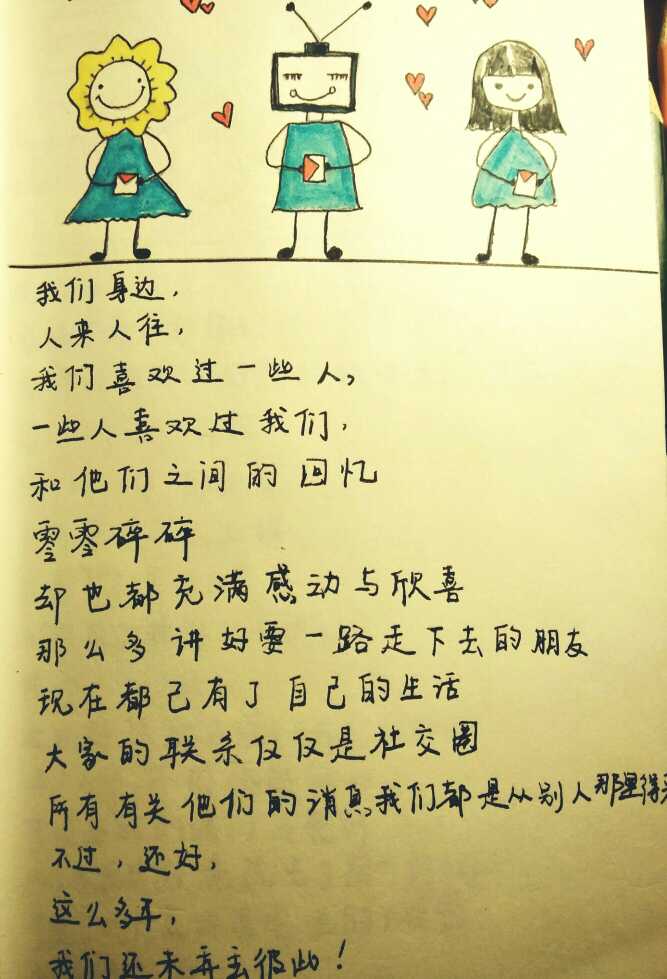 我们身边，
人来人往，
我们喜欢过一些人，
一些人喜欢过我们，
和他们之间的回忆
零零碎碎
却也都充满感动与欣喜
那么多讲好要一路走下去的朋友
现在都已有了自己的生活
大家的联系仅仅是社交圈
所有有关他们的消息我们都是从别人那里得
不过，还好，
这么多年，
我们还未弃去彼此！